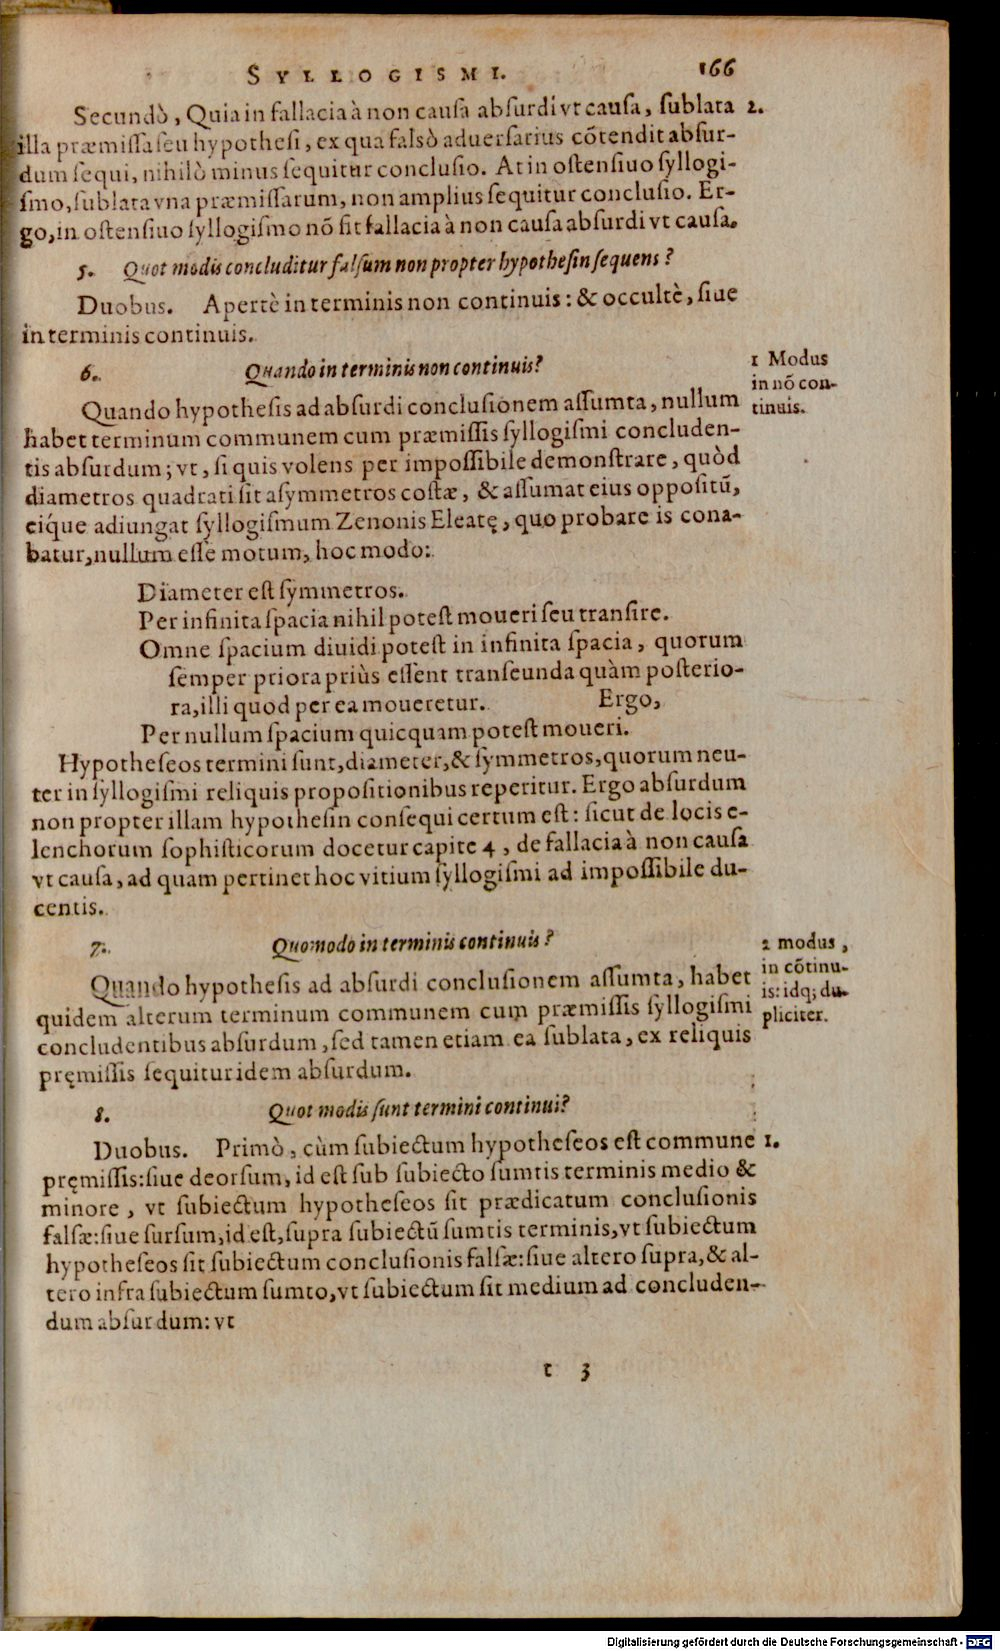 SYLLOGISMI. 166
Secundò, Quia in fallacia à non causa absurdi vt causa, sublata 2.
illa præmissa seu hypothesi, ex qua falsò aduersarius cōtendit absur-
dum sequi, nihilò minus sequitur conclusio. At in ostensiuo syllogi-
smo, sublata vna præmissarum, non amplius sequitur conclusio. Er-
go, in ostensiuo syllogismo nō fit fallacia à non causa absurdi vt causa.
5. Quot modis concluditur falsum non propter hypothesin sequens?
Duobus. Apertè in terminis non continuis: & occultè, siue
in terminis continuis.
6. Quando in terminis non continuis?
1 Modus
in nō con-
tinuis.
Quando hypothesis ad absurdi conclusionem assumta, nullum
habet terminum communem cum præmissis syllogismi concluden-
tis absurdum; vt, si quis volens per impossibile demonstrare, quòd
diametros quadrati sit asymmetros costæ, & assumat eius oppositū,
eiq́ue adiungat syllogismum Zenonis Eleatę, quo probare is cona-
batur, nullum esse motum, hoc modo:
Diameter est symmetros.
Per infinita spacia nihil potest moueri seu transire.
Omne spacium diuidi potest in infinita spacia, quorum
semper priora priùs essent transeunda quàm posterio-
ra, illi quod per ea moueretur. Ergo,
Per nullum spacium quicquam potest moueri.
Hypotheseos termini sunt, diameter, & symmetros, quorum neu-
ter in syllogismi reliquis propositionibus reperitur. Ergo absurdum
non propter illam hypothesin consequi certum est: sicut de locis e-
lenchorum sophisticorum docetur capite 4, de fallacia à non causa
vt causa, ad quam pertinet hoc vitium syllogismi ad impossibile du-
centis.
7. Quomodo in terminis continuis?
2 modus,
in cōtinu-
is: idq; du-
pliciter.
Quando hypothesis ad absurdi conclusionem assumta, habet
quidem alterum terminum communem cum præmissis syllogismi
concludentibus absurdum, sed tamen etiam ea sublata, ex reliquis
pręmissis sequitur idem absurdum.
8. Quot modis sunt termini continui?
Duobus. Primò, cùm subiectum hypotheseos est commune 1.
pręmissis: siue deorsum, id est sub subiecto sumtis terminis medio &
minore, vt subiectum hypotheseos sit prædicatum conclusionis
falsæ: siue sursum, id est, supra subiectū sumtis terminis, vt subiectum
hypotheseos sit subiectum conclusionis falsæ: siue altero supra, & al-
tero infra subiectum sumto, vt subiectum sit medium ad concluden-
dum absurdum: vt
t 3
Digitalisierung gefördert durch die Deutsche Forschungsgemeinschaft - DFG